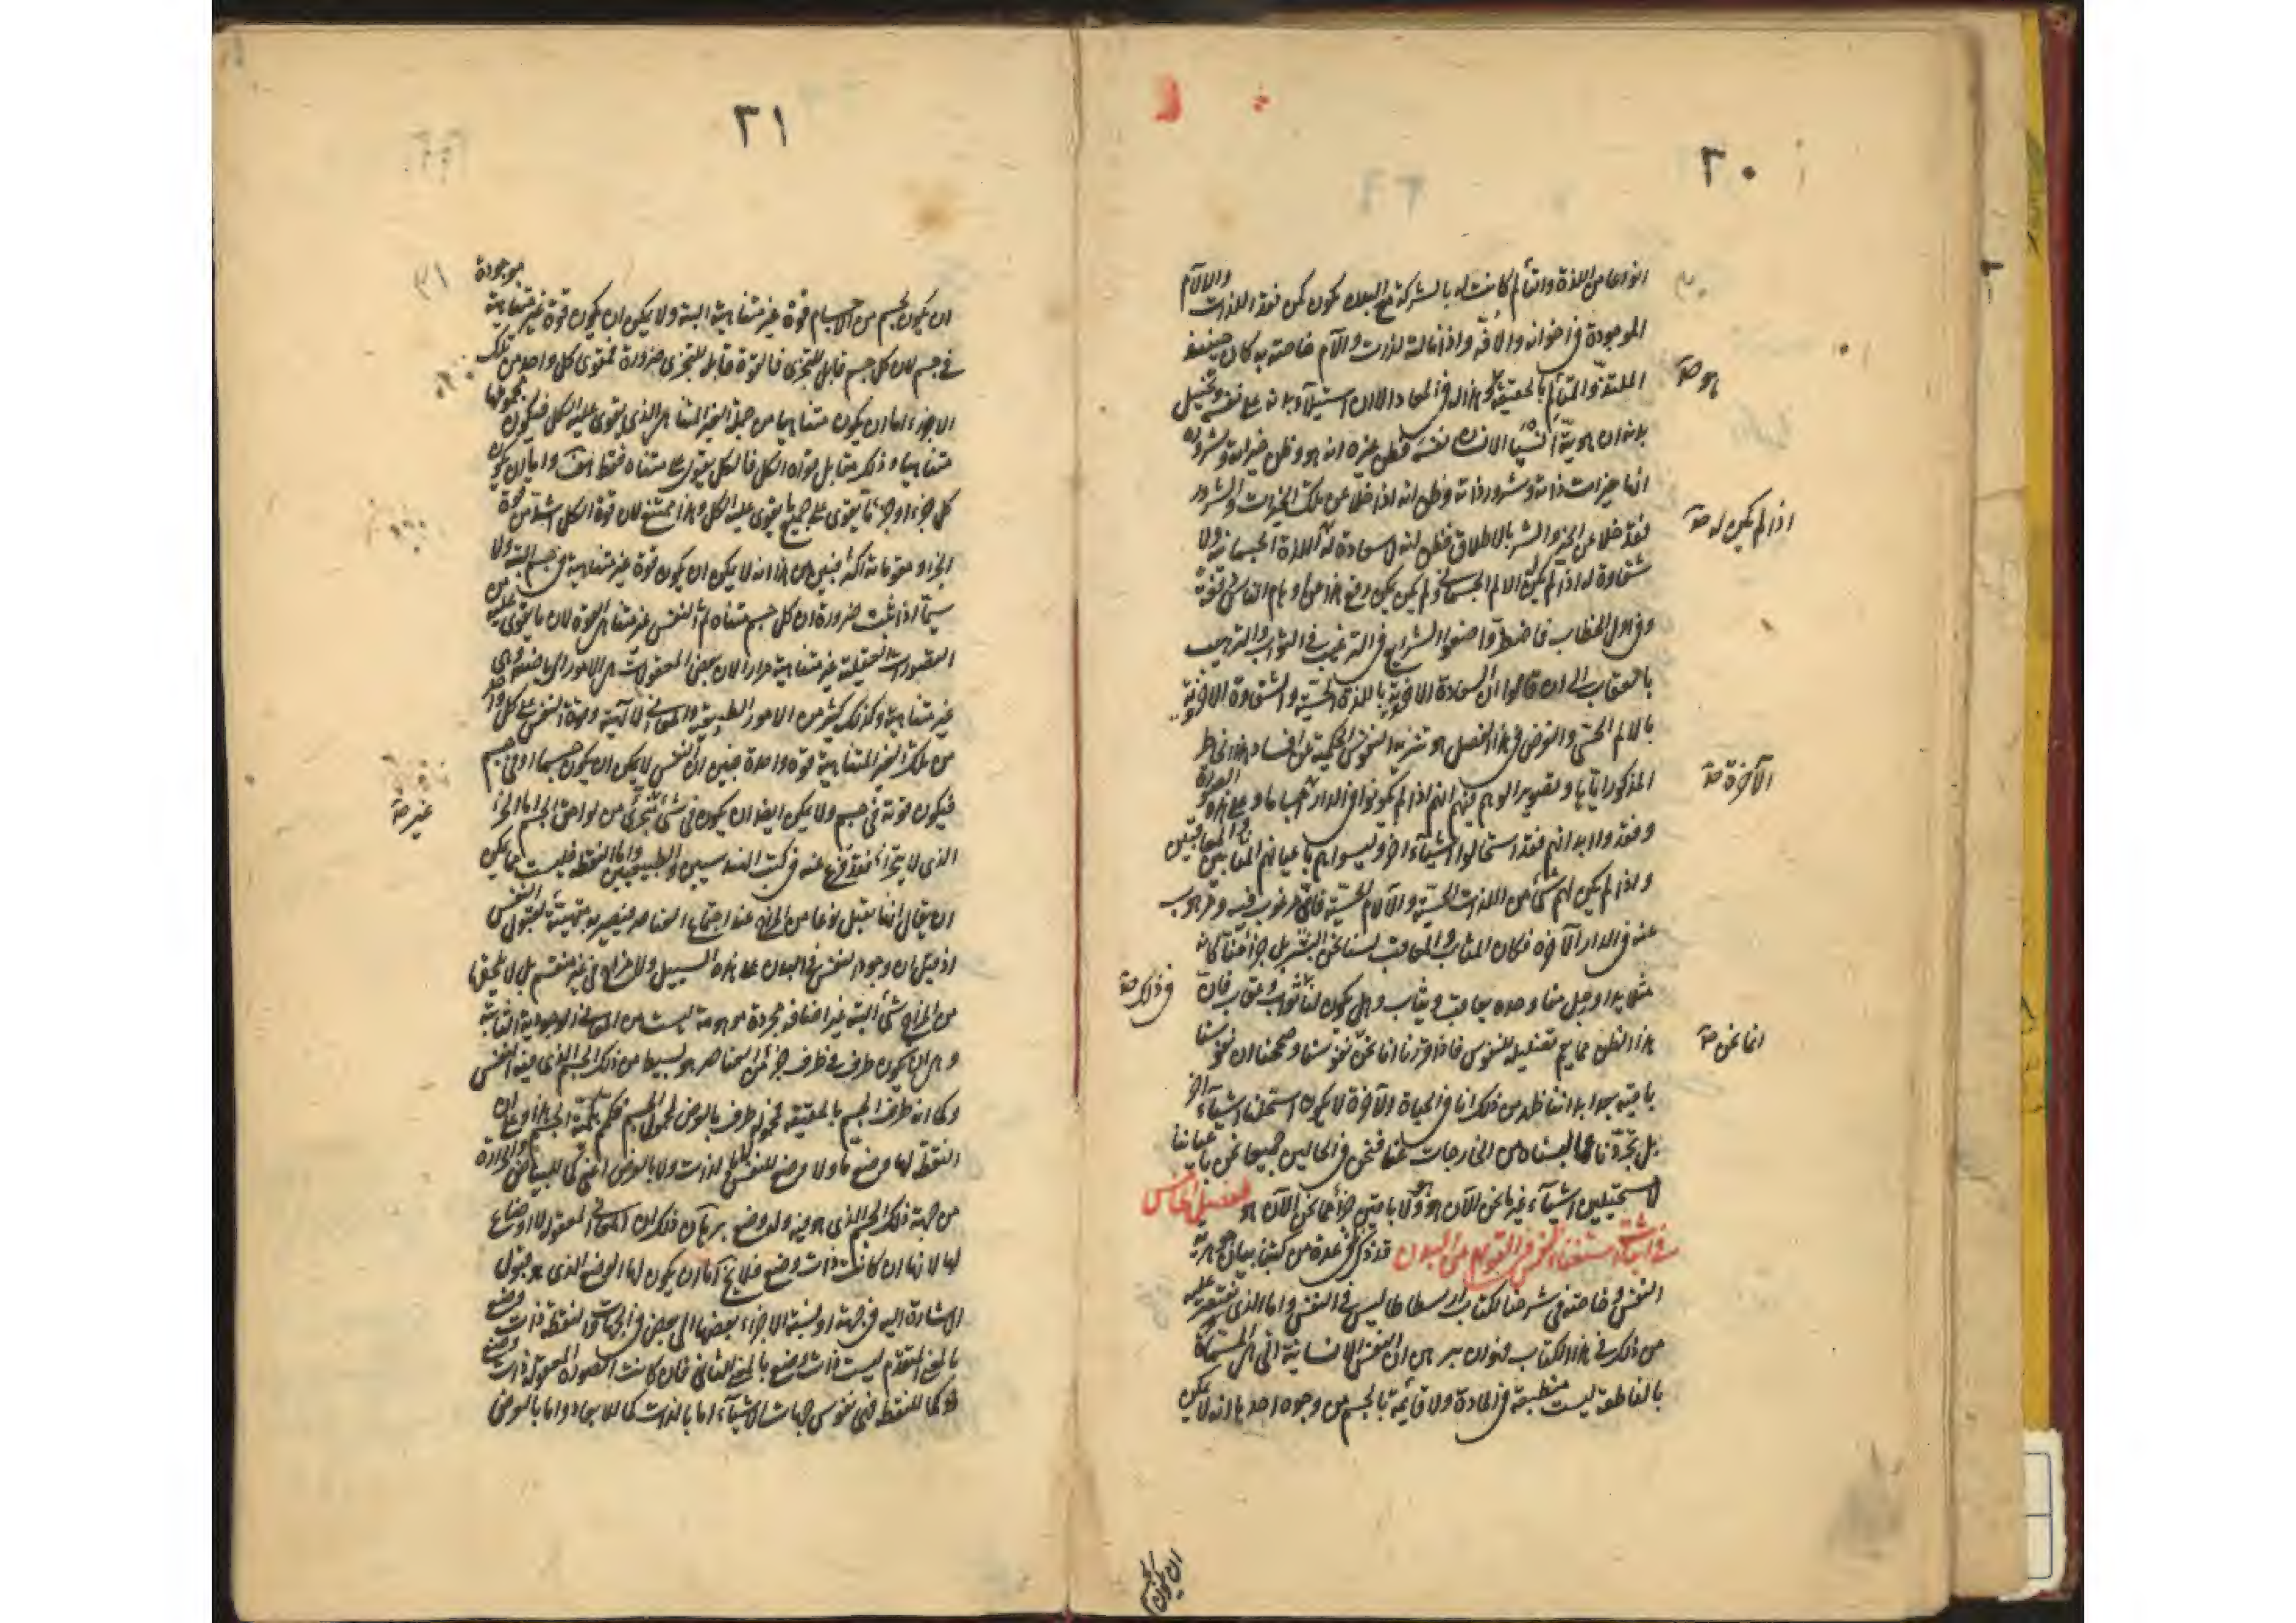 ٣٠
انواعا من اللذة والتألم كانت له بالشركة مع البدن يكون كمن فقد اللذات والالام
الموجودة فى اخوانه والافه واذا نالته لذات والام خاصته به كان حينئذ
الملتذ والمتألم بالحقيقة وهذا له فى المعاد الا ان استيلاء بدنه على نفسه وتخييل
بدنه ان هويته انسيا الانسان نفسه فظن غيره انه هو وظن خيراته وشروره
انها خيرات ذاته وشرور ذاته وظن انه اذا خلا عن تلك الخيرات والشرور
فقد خلا عن الخير والشر بالاطلاق فظن انه لا سعادة له اللذة الجسمانية ولا
شقاوة له اذا لم يكن الالم الجسمانى ولم يكن يمكن رفع هذا من اوهام الناس دفعة
وفى اول الخطاب فاضطر واضعوا الشرايع فى الترغيب فى الثواب والترهيب
بالعقاب الى ان قالوا ان السعادة الاخروية باللذة الحسية والشقاوة الاخروية
بالالم الحسى والغرض فى هذا الفصل هو تنزيه النفوس الحكمية عن افساد هذا الخاطر
المذكور اياها وتصوير الوهم فيهم انهم اذا لم يكونوا فى الدار
وفقدوا ابدانهم فقد استحالوا اشياء اخر وليسوا هم باعيانهم المثابين والمعاقبين
واذا لم يكن لهم شئ من اللذات الحسية والالام الحسية فاى مرغوب فيه ومرهوب
عنه فى الدار الآخرة فكان المثاب والمعاقب لسنا نحن البشر بل جزأ منا كانه
مثلا يد او رجل منا وحده يعاقب ويثاب وهل يكون لنا ثواب وعقاب فان
هذا الظن مما يعم تضليله للنفوس فاذا قررنا انا نحن نفوسنا وصححنا ان نفوسنا
باقية بعد ابداننا ظهر من ذلك انا فى الحياة الآخرة لا يكون استحلنا اشياء اخر
بل تجردنا عما لبسناه من الخارجات عنا فنحن فى الحالين جميعا نحن باعياننا
لا مستحيلين اشياء غير ما نحن الآن هو ولا باقين جزأ مما نحن الآن هو الفصل الخامس
فى اثبات استغناء النفس فى القوام عن البدن قد ذكر فى عدة من كتبنا بيان جوهرية
النفس وخاصته فى شرحنا لكتاب ارسطاطاليس فى النفس واما الذى نقتصر عليه
من ذلك فى هذا الكتاب فهو ان نبرهن ان النفس الانسانية التى هى المسماة
بالناطقة ليست منطبعة فى المادة ولا قائمة بالجسم من وجوه احدها انه لا يمكن
هو صح
اذا لم يكن له صح
الآخرة صح
فى ذلك صح
انا نحن صح
ان يكون لجسم
٣١
ان يكون لجسم من الاجسام قوة غير متناهية البتة ولا يمكن ان يكون قوة غير متناهية موجودة
فى جسم لان كل جسم قابل للتجزى فالقوة قابلة للتجزى ضرورة فيقوى كل واحد من تلك
الاجزاء اما ان يكون متناهيا من جملة الغير المتناهى الذى يقوى عليه الكل فيكون مجموعها
متناهيا وذلك مقابل قوة الكل فالكل يقوى على متناه فقط هف واما ان يكون
كل جزء او جزء ما يقوى على جميع ما يقوى عليه الكل وهذا ممتنع لان قوة الكل اشد من قوة
الجزء ومقوياته اكثر فبين من هذا انه لا يمكن ان يكون قوة غير متناهية فى جسم البتة ولا
سيما اذا ثبت ضرورة ان كل جسم متناه ثم النفس غير متناهى القوة لان ما يقوى عليه من
التصورات العقلية غير متناهية مرارا لان بعض المعقولات هى الامور الرياضية وهى
غير متناهية وكذلك كثير من الامور الطبيعية والمعانى الالهية وقوة النفس على كل واحد
من تلك الغير المتناهية قوة واحدة فبين ان النفس لا يمكن ان يكون جسما او فى جسم
فيكون قوته فى جسم ولا يمكن ايضا ان يكون فى شئ تجزئ من لواحق الجسم اما الجزء
الذى لا يتجزأ فقد فرغ عنه فى كتب الهندسيين والطبيعيين واما النقطة فليست مما يمكن
ان يقال انها تقبل نوعا من المزاج عند اجتماع العناصر فيصير به متهيئة لقبول النفس
اذ قيل ان وجود النفس فى البدن على هذه السبيل ولا مزاج فى غير منقسم بل لا يلحقها
من المزاج شئ البتة غير اضافة مجردة موهومة ليست من المعانى الوجودية الثابتة
وهى انها يكون طرف فى ظرف جزء من العناصر هو بسيط من ذلك الجسم الذى فيه النفس
وكما انه طرف الجسم بالحقيقة فمحموله طرف بالعرض لمحمول الجسم
النقطة لها وضع ما ولا وضع للنفس بالذات ولا بالعرض اعنى كما للبياض والحرارة
من جهة ذلك الجسم الذى هو فيه وله وضع برهان ذلك ان المعانى المعقولة لا اوضاع
لها لانها ان كانت ذات وضع فلا يخ اما ان يكون لها الوضع الذى هو قبول
الاشارة اليه فى جهة او نسبة الاجزاء بعضها الى بعض فى الجهات والنقطة ذات وضع
بالمعنى المتقدم ليست ذات وضع بالمعنى الثانى فان كانت الصورة المعقولة ذات وضع
كما للنقطة فهى نفوس جهات الاشياء اما بالذات كما للابعاد واما بالعرض
غير صح